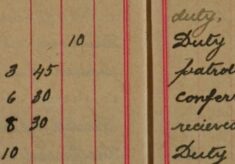 duty,
10 Duty
3 45 patrol
6 30 confer
8 30 recieved
10 Duty